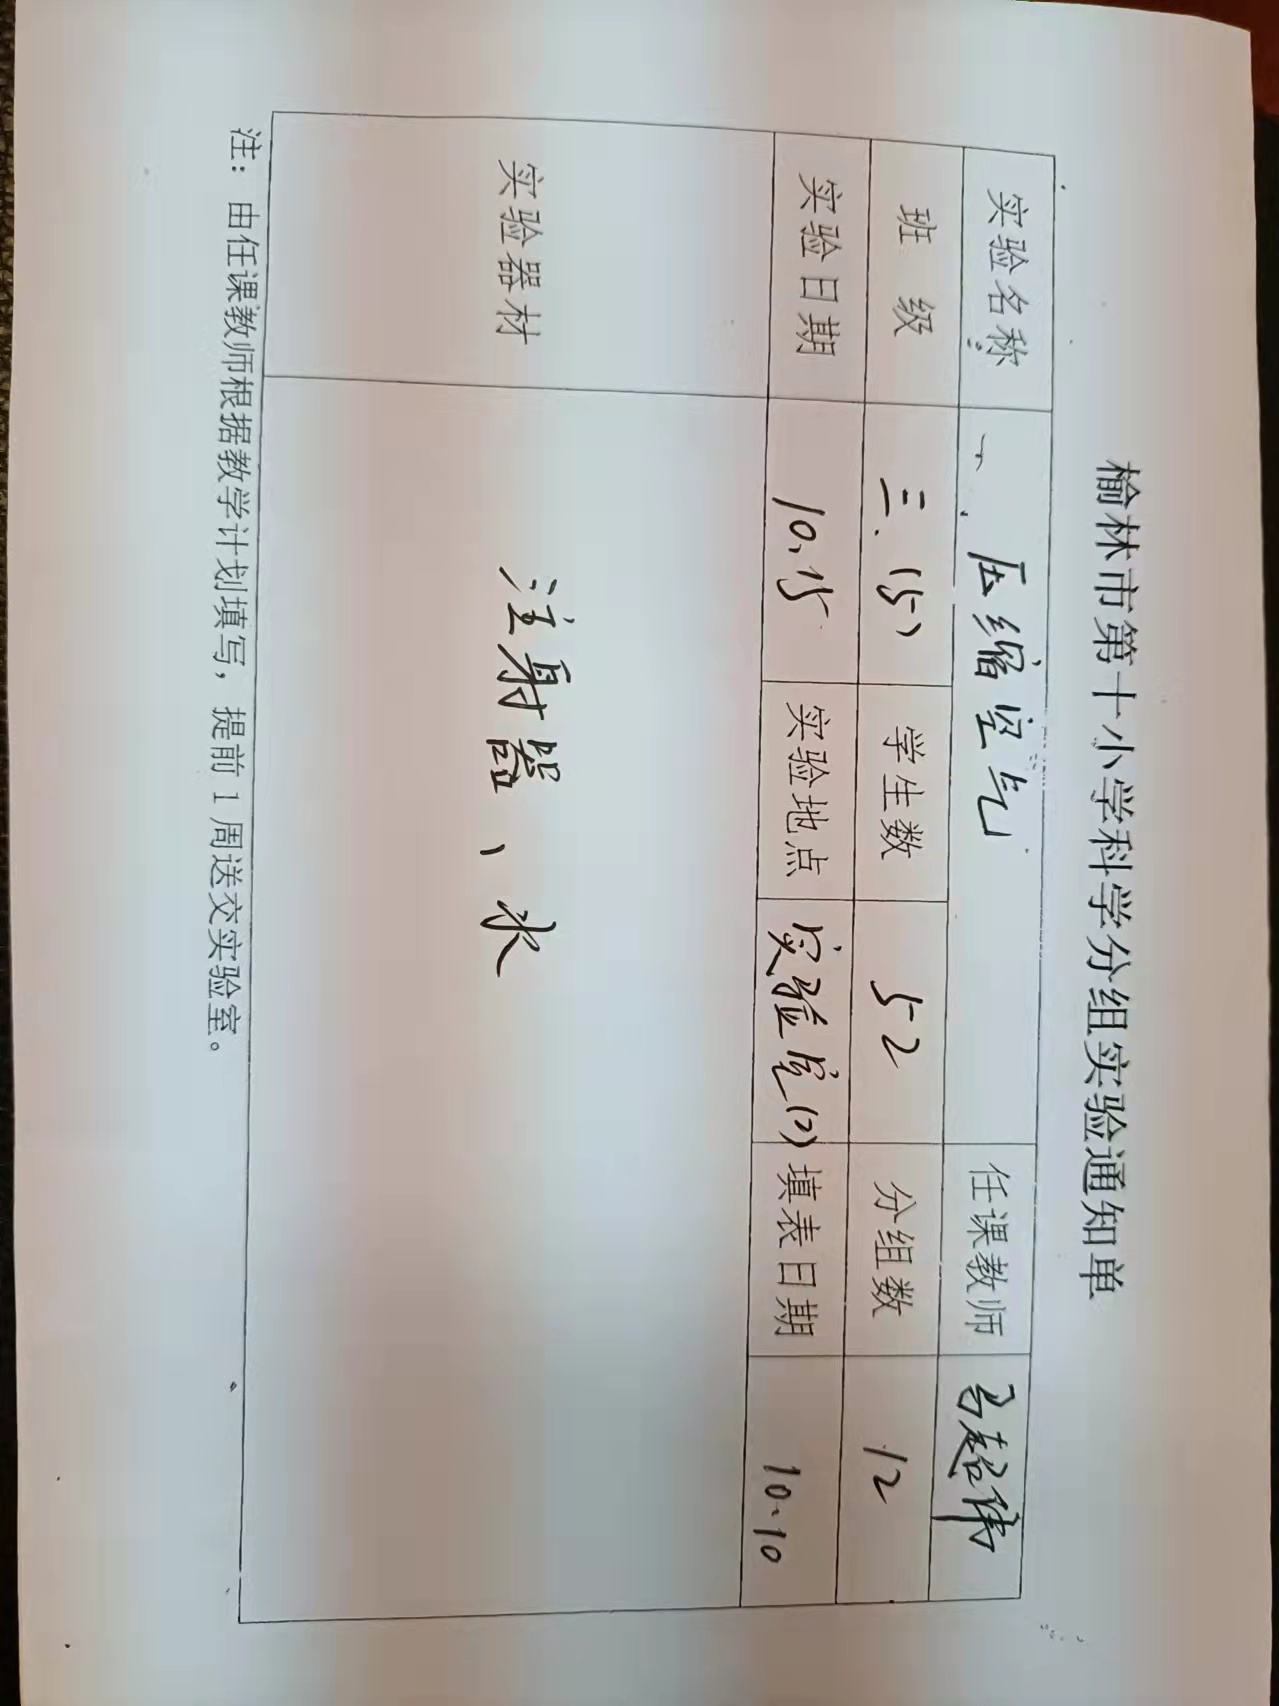 榆林市第十小学科学分组实验通知单
实验名称 一、压缩空气 任课教师 马超伟
班 级 三.(5) 学生数 52 分组数 12
实验日期 10.15 实验地点 实验室(2) 填表日期 10.10
实验器材 注射器、水
注：由任课教师根据教学计划填写，提前1周送交实验室。